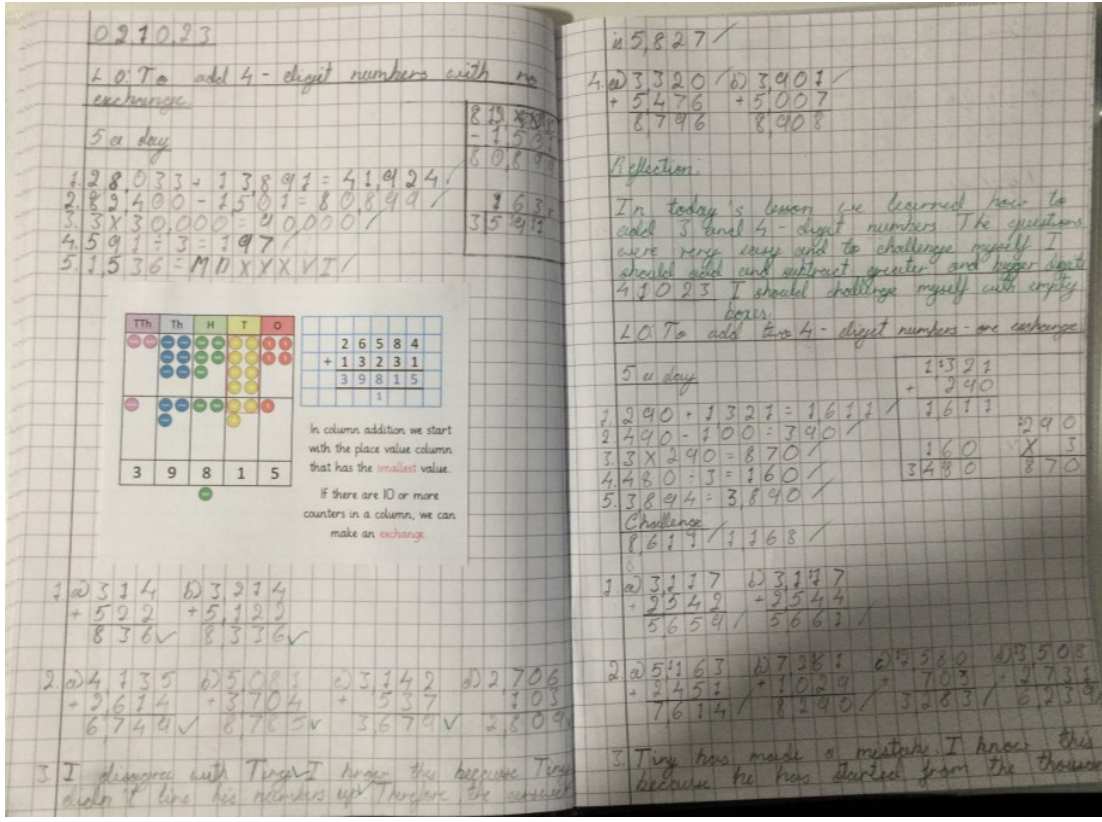 021023
LO: To add 4-digit numbers with no
exchange
5 a day
1. 28,033 + 13,891 = 41,924
2. 82400 - 1501 = 80,899
3. 3 x 30,000 = 90,000
4. 591 ÷ 3 = 197
5. 1,536 = MDXXXVI
TTh Th H T O
3 9 8 1 5
2 6 5 8 4
+ 1 3 2 3 1
3 9 8 1 5
1
In column addition we start
with the place value column
that has the smallest value.
If there are 10 or more
counters in a column, we can
make an exchange.
1. a) 314 b) 3,214
+ 522 + 5,122
836 8336
2. a) 4135 b) 5081 c) 3,142 d) 2706
+ 2,614 + 3704 + 537 103
6749 8785 3679 2809
3. I disagree with Tiny I know this because Tiny
didn't line his numbers up Therefore the
is 5,827
4. a) 3320 b) 3,901
+ 5476 + 5,007
8,796 8,908
Reflection:
In today's lesson we learned how to
add 3 and 4-digit numbers The questions
were very easy and to challenge myself I
should add and subtract greater and bigger digits
41023 I should challenge myself with empty
boxes.
LO: To add two 4-digit numbers - one exchange
5 a day
1321
+ 290
1611
1. 290 + 1321 = 1,611
2. 490 - 100 = 390
3. 3 x 290 = 870
4. 480 ÷ 3 = 160
5. 3894 = 3,890
290
160 x 3
3 480 870
Challenge
8,611 1168
1. a) 3,117 b) 3,117
+ 2542 + 2544
5659 5661
2. a) 5163 b) 7261 c) 2580 d) 3508
+ 2451 + 1029 + 703 2731
7614 8290 3283 6239
3. Tiny has made a mistake. I know this
because he has started from the